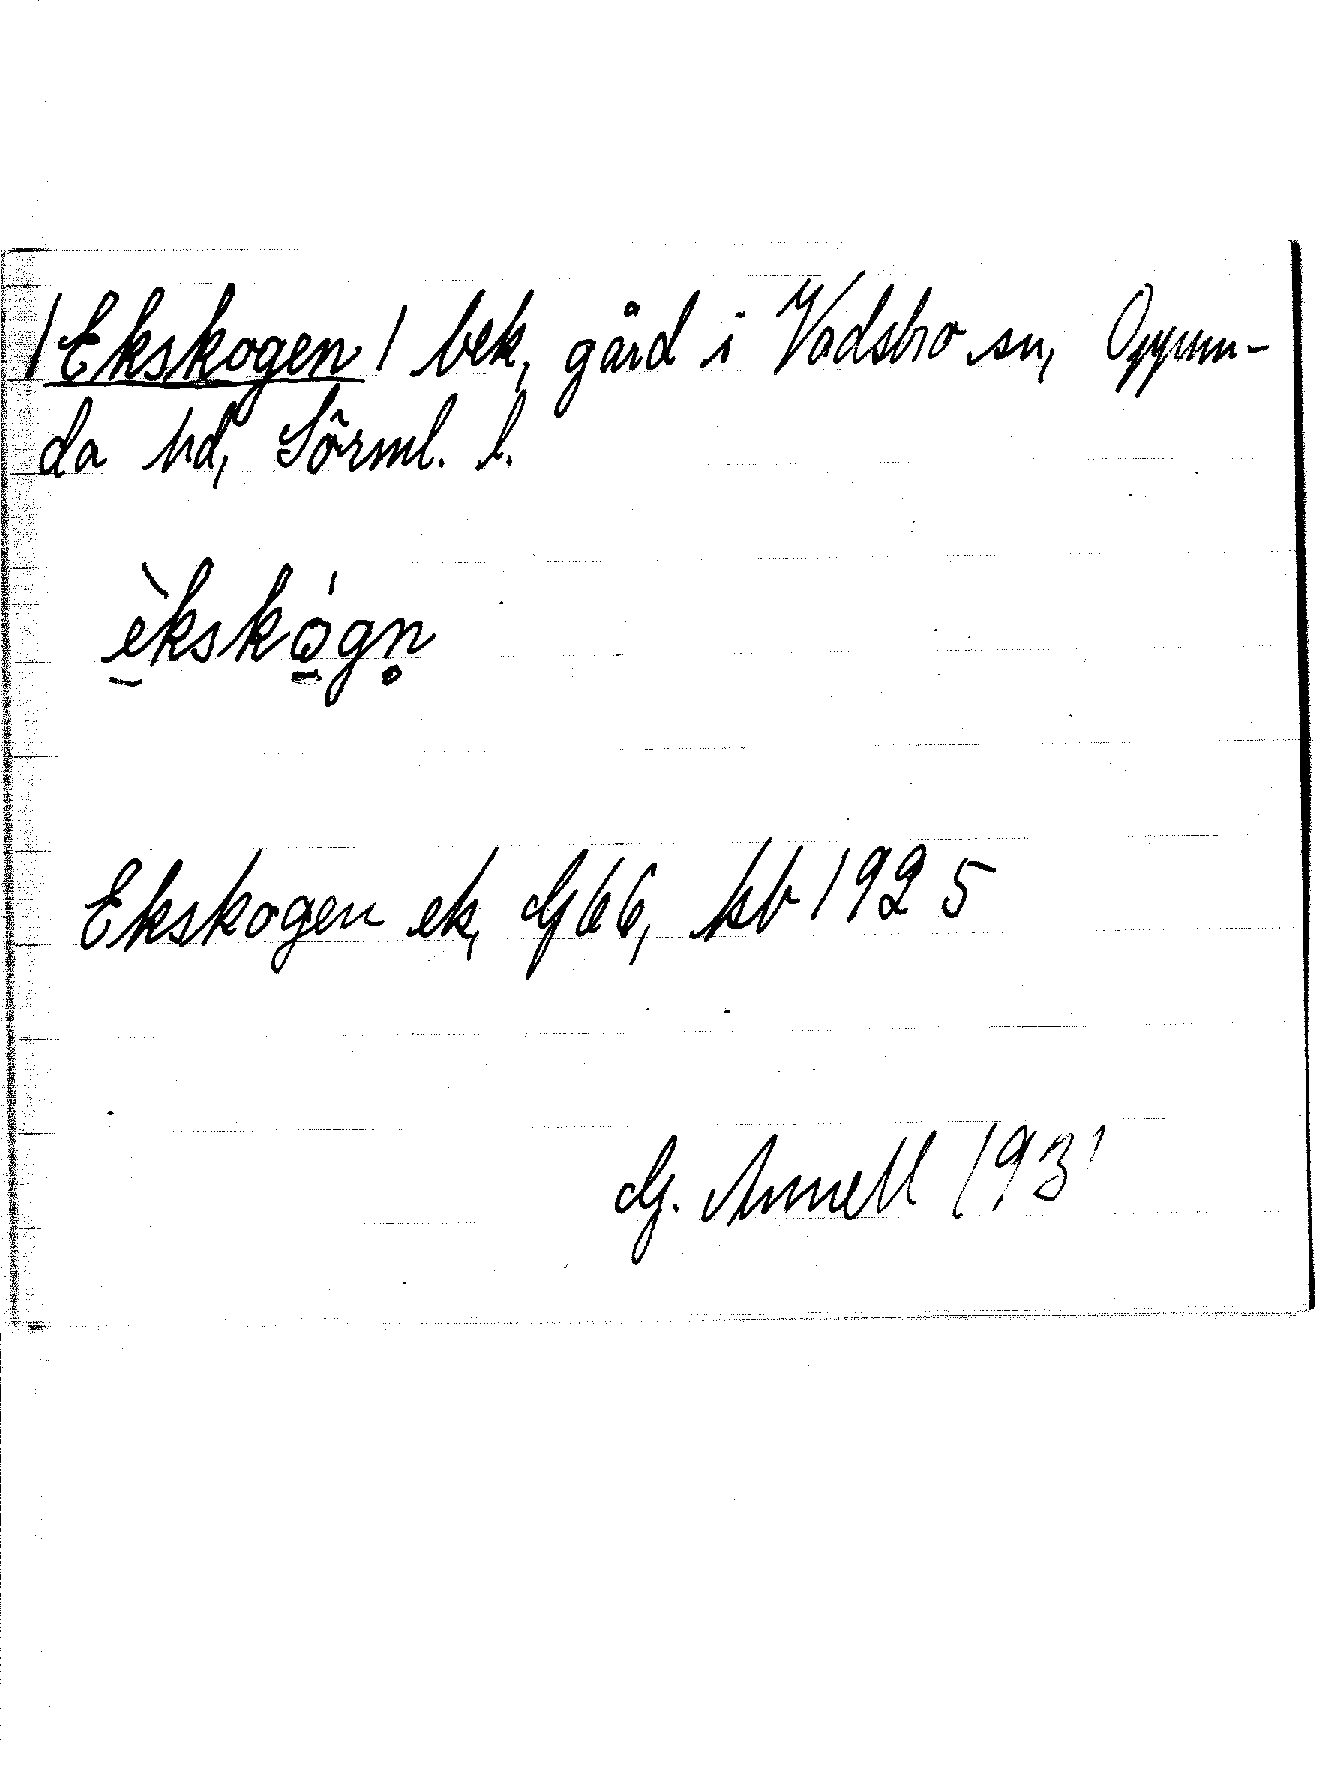 /Ekskogen/ bek, gård i Vadsbro sn, Oppun-
da hd, Sörml. l.
è̠kskó̠gn̥
Ekskogen ek, G66, kb 1925
G. Annell 1931